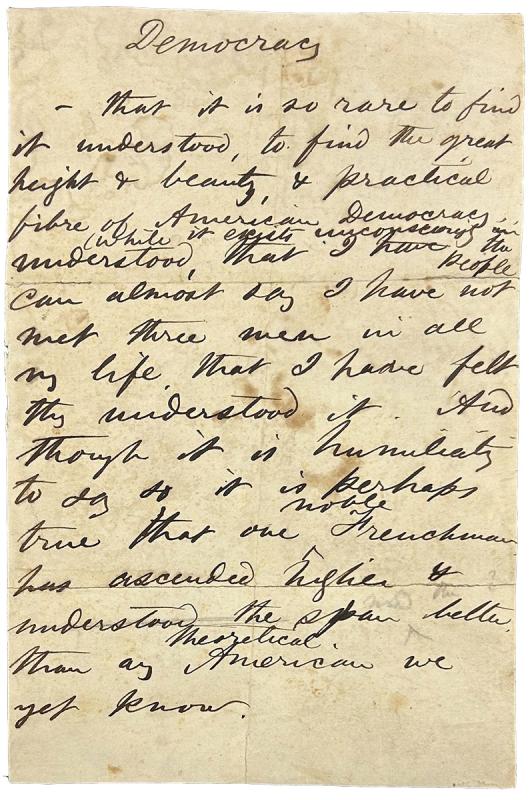 Democracy
– that it is so rare to find
it understood, to find the great
height & beauty, & practical
fibre of American Democracy
(while it exists unconsciously in the people
understood, that I have
can almost say I have not
met three men in all
my life that I have felt
they understood it. And
though it is humiliating
to say so it is perhaps
noble
true that one Frenchman
has ascended higher &
understood the span better
theoretical
than any American we
yet know.